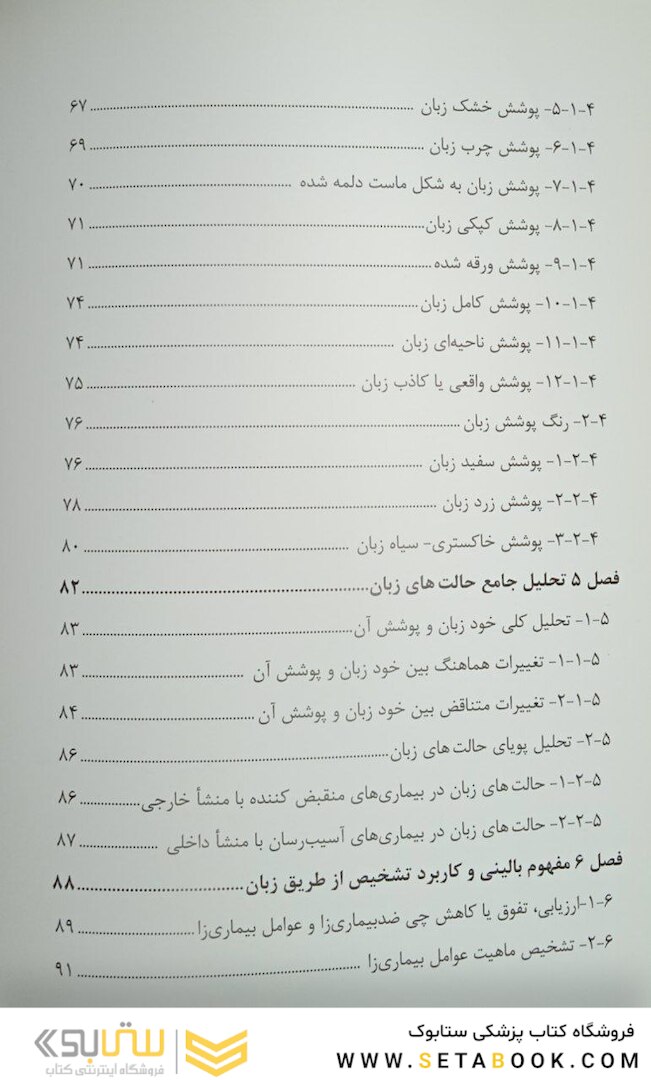 ۴-۱-۵- پوشش خشک زبان ........ ۶۷
۴-۱-۶- پوشش چرب زبان ........ ۶۹
۴-۱-۷- پوشش زبان به شکل ماست دلمه شده ........ ۷۰
۴-۱-۸- پوشش کپکی زبان ........ ۷۱
۴-۱-۹- پوشش ورقه شده ........ ۷۱
۴-۱-۱۰- پوشش کامل زبان ........ ۷۴
۴-۱-۱۱- پوشش ناحیه‌ای زبان ........ ۷۴
۴-۱-۱۲- پوشش واقعی یا کاذب زبان ........ ۷۵
۴-۲- رنگ پوشش زبان ........ ۷۶
۴-۲-۱- پوشش سفید زبان ........ ۷۶
۴-۲-۲- پوشش زرد زبان ........ ۷۸
۴-۲-۳- پوشش خاکستری- سیاه زبان ........ ۸۰
فصل ۵ تحلیل جامع حالت های زبان ........ ۸۲
۵-۱- تحلیل کلی خود زبان و پوشش آن ........ ۸۳
۵-۱-۱- تغییرات هماهنگ بین خود زبان و پوشش آن ........ ۸۳
۵-۱-۲- تغییرات متناقض بین خود زبان و پوشش آن ........ ۸۴
۵-۲- تحلیل پویای حالت های زبان ........ ۸۶
۵-۲-۱- حالت های زبان در بیماری‌های منقبض کننده با منشأ خارجی ........ ۸۶
۵-۲-۲- حالت های زبان در بیماری‌های آسیب‌رسان با منشأ داخلی ........ ۸۷
فصل ۶ مفهوم بالینی و کاربرد تشخیص از طریق زبان ........ ۸۸
۶-۱-ارزیابی، تفوق یا کاهش چی ضدبیماری‌زا و عوامل بیماری‌زا ........ ۸۹
۶-۲- تشخیص ماهیت عوامل بیماری‌زا ........ ۹۱
فروشگاه کتاب پزشکی ستابوک
WWW.SETABOOK.COM
ستابوک
فروشگاه اینترنتی کتاب